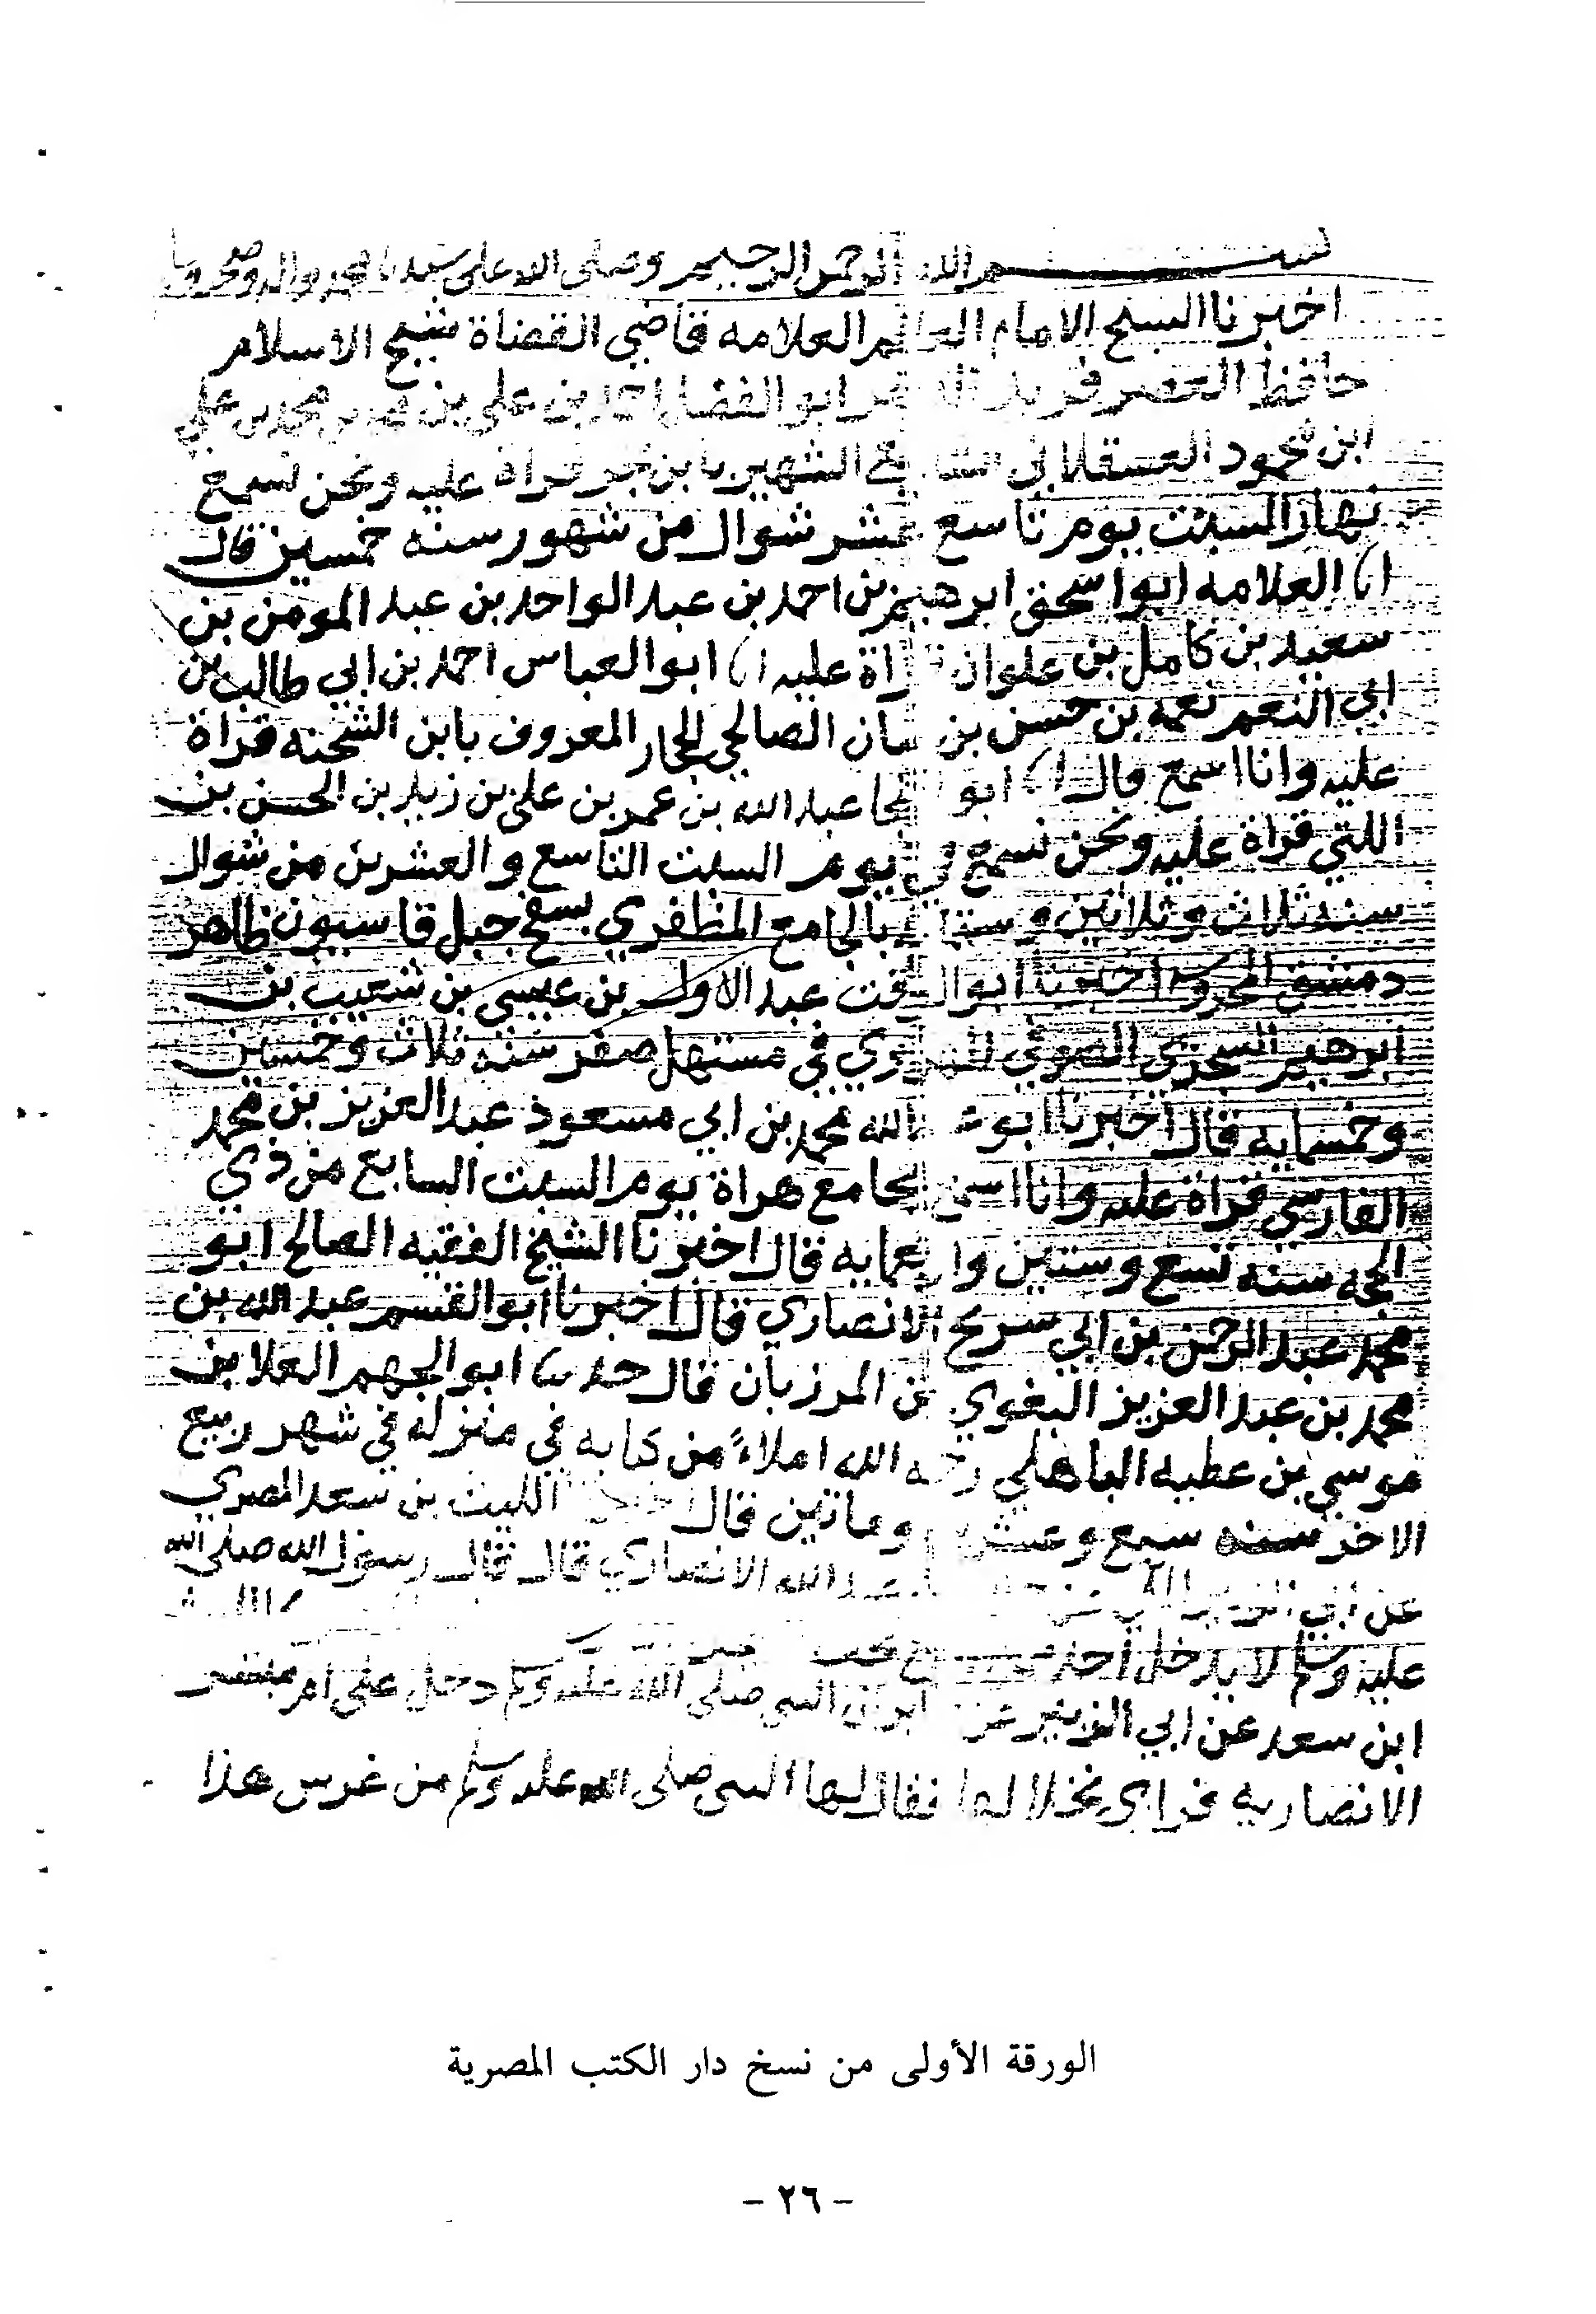 بسم الله الرحمن الرحيم وصلى الله على سيدنا محمد واله وصحبه
اخبرنا الشيخ الامام العالم العلامه قاضي القضاة شيخ الاسلام
حافظ العصر فريد ابو الفضل احمد بن علي بن محمد بن محمد بن علي
ابن محمود العسقلاني الشهير بابن حجر قراة عليه ونحن نسمع
نهار السبت يوم تاسع عشر شوال من شهور سنه خمسين قال
انا العلامه ابو اسحق ابرهيم بن احمد بن عبد الواحد بن عبد المومن بن
سعيد بن كامل بن علوان قراة عليه انا ابو العباس احمد بن ابي طالب بن
ابي النعم نعمه بن حسن بن بيان الصالحي الحجار المعروف بابن الشحنه قراة
عليه وانا اسمع قال انا ابو النجا عبد الله بن عمر بن علي بن زيد بن الحسن بن
اللتي قراة عليه ونحن نسمع في يوم السبت التاسع والعشرين من شوال
سنه ثلاث وثلاثين وستمايه بالجامع المظفري بسفح جبل قاسيون ظاهر
دمشق المحروسه اخبرنا ابو الوقت عبد الاول بن عيسي بن شعيب بن
ابرهيم السجزي الصوفي الهروي في مستهل صفر سنه ثلاث وخمسين
وخمسايه قال اخبرنا ابو عبد الله محمد بن ابي مسعود عبد العزيز بن محمد
الفارسي قراة عليه وانا اسمع بجامع هراة يوم السبت السابع من ذي
الحجه سنه تسع وستين واربعمايه قال اخبرنا الشيخ الفقيه الصالح ابو
محمد عبد الرحمن بن ابي سريح الانصاري قال اخبرنا ابو القسم عبد الله بن
محمد بن عبد العزيز البغوي بن المرزبان قال حدثنا ابو الجهم العلا بن
موسي بن عطيه الباهلي رحمه الله املاءً من كتابه في منزله في شهر ربيع
الاخر سنه سبع وعشرين وماتين قال الليث بن سعد المصري
عن ابي الزبير عبد الله الانصاري قال قال رسول الله صلى الله
عليه وسلم لا يدخل احد
ابن سعد عن ابي الزبير عن جابر ان النبي صلى الله عليه وسلم دخل على ام مبشر
الانصاريه فراى نخلا لها فقال لها النبي صلى الله عليه وسلم من غرس هذا
الورقة الأولى من نسخ دار الكتب المصرية
- ٢٦ -